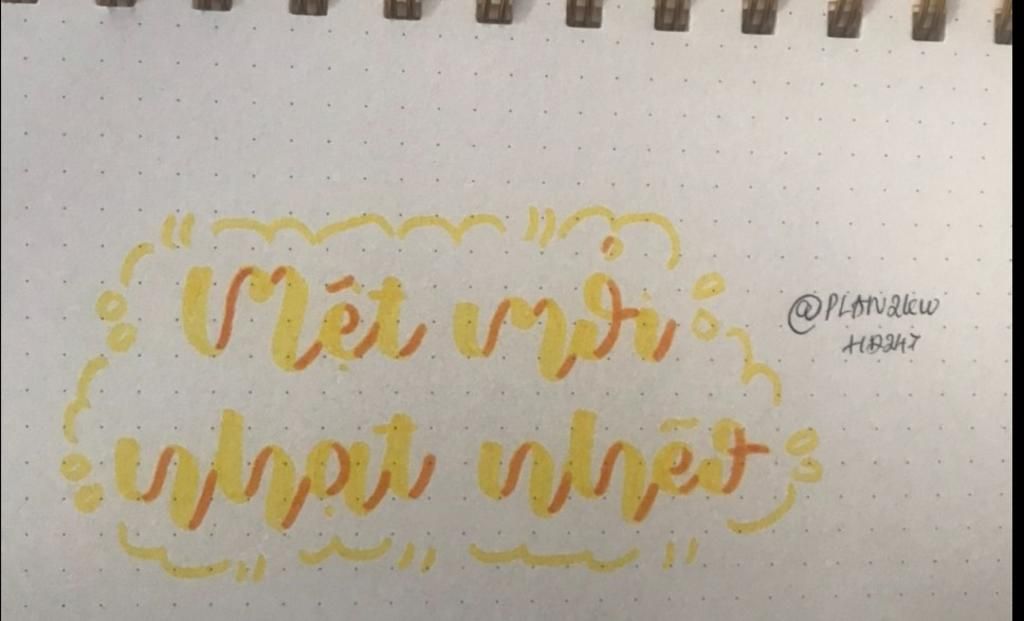 Mệt mỏi
nhạt nhẽo
@PLAN2KW
HD247